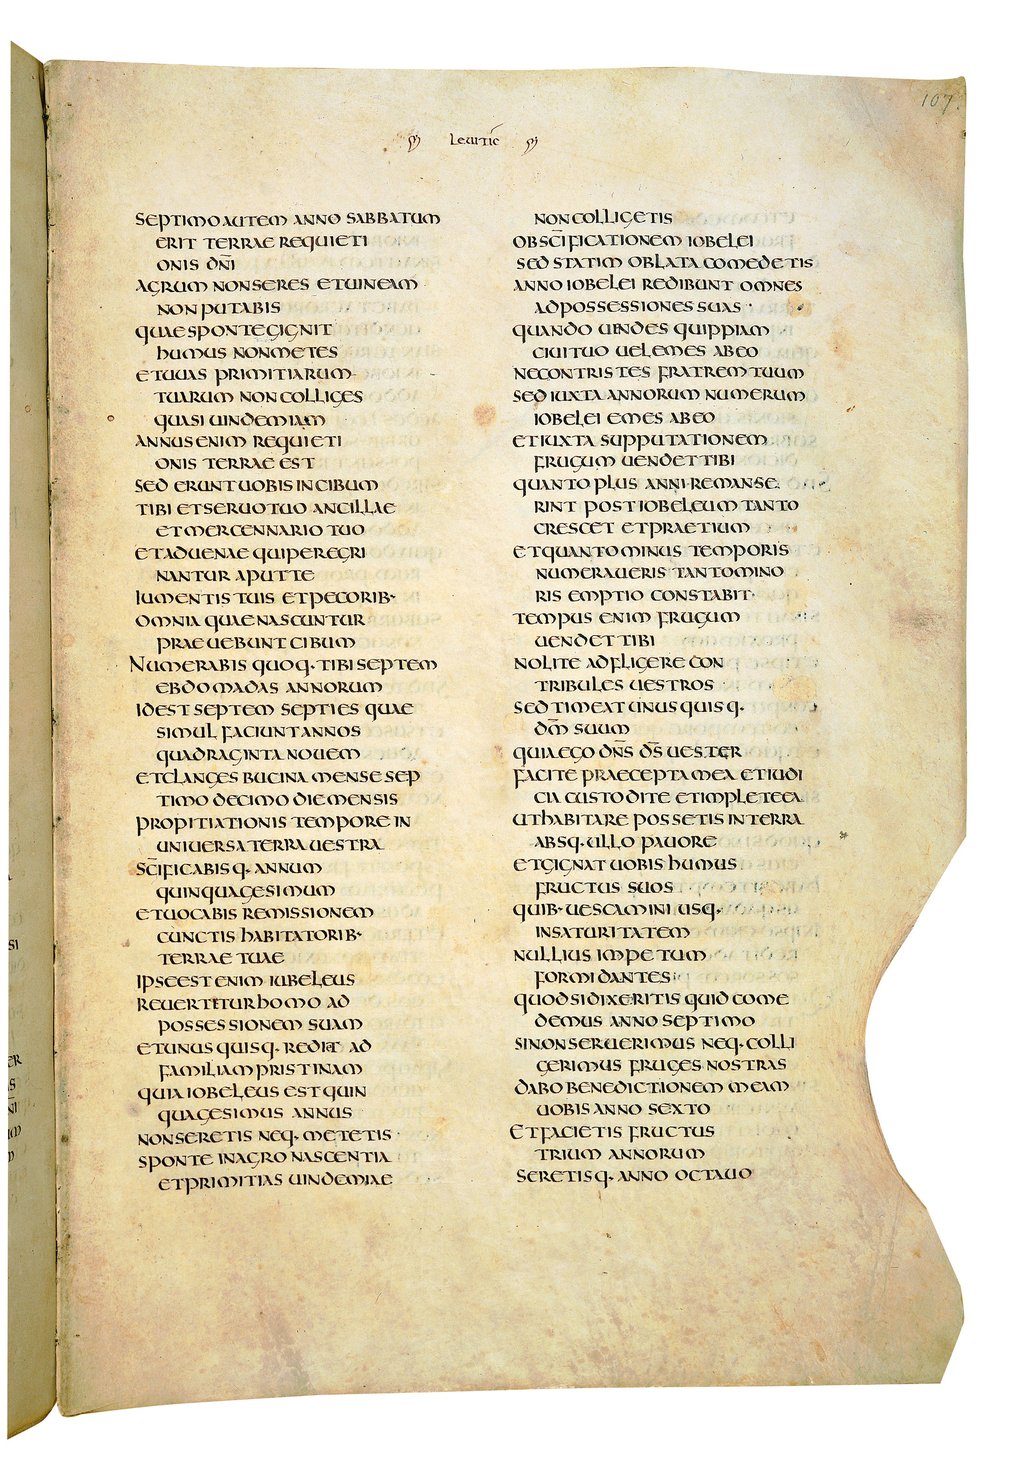 107.
Leuitic̄
SEPTIMO AUTEM ANNO SABBATUM
ERIT TERRAE REQUIETI
ONIS DN̄I
AGRUM NON SERES ET UINEAM
NON PUTABIS
QUAE SPONTE GIGNIT
HUMUS NON METES
ET UUAS PRIMITIARUM
TUARUM NON COLLIGES
QUASI UINDEMIAM
ANNUS ENIM REQUIETI
ONIS TERRAE EST
SED ERUNT UOBIS IN CIBUM
TIBI ET SERUO TUO ANCILLAE
ET MERCENNARIO TUO
ET ADUENAE QUI PEREGRI
NANTUR APUT TE
IUMENTIS TUIS ET PECORIB·
OMNIA QUAE NASCUNTUR
PRAEUEBUNT CIBUM
NUMERABIS QUOQ· TIBI SEPTEM
EBDOMADAS ANNORUM
ID EST SEPTEM SEPTIES QUAE
SIMUL FACIUNT ANNOS
QUADRAGINTA NOUEM
ET CLANGES BUCINA MENSE SEP
TIMO DECIMO DIE MENSIS
PROPITIATIONIS TEMPORE IN
UNIUERSA TERRA UESTRA
SC̄IFICABISQ· ANNUM
QUINQUAGESIMUM
ET UOCABIS REMISSIONEM
CUNCTIS HABITATORIB·
TERRAE TUAE
IPSE EST ENIM IUBELEUS
REUERTITUR HOMO AD
POSSESSIONEM SUAM
ET UNUSQUISQ· REDIAT AD
FAMILIAM PRISTINAM
QUIA IOBELEUS EST QUIN
QUAGESIMUS ANNUS
NON SERETIS NEQ· METETIS
SPONTE IN AGRO NASCENTIA
ET PRIMITIAS UINDEMIAE
NON COLLIGETIS
OB SC̄IFICATIONEM IOBELEI
SED STATIM OBLATA COMEDETIS
ANNO IOBELEI REDIBUNT OMNES
AD POSSESSIONES SUAS
QUANDO UINDES QUIPPIAM
CIUI TUO UEL EMES AB EO
NE CONTRISTES FRATREM TUUM
SED IUXTA ANNORUM NUMERUM
IOBELEI EMES AB EO
ET IUXTA SUPPUTATIONEM
FRUGUM UENDET TIBI
QUANTO PLUS ANNI REMANSE
RINT POST IOBELEUM TANTO
CRESCET ET PRAETIUM
ET QUANTO MINUS TEMPORIS
NUMERAUERIS TANTO MINO
RIS EMPTIO CONSTABIT
TEMPUS ENIM FRUGUM
UENDET TIBI
NOLITE ADFLIGERE CON
TRIBULES UESTROS
SED TIMEAT UNUSQUISQ·
DM̄ SUUM
QUIA EGO DN̄S DS̄ UESTER
FACITE PRAECEPTA MEA ET IUDI
CIA CUSTODITE ET IMPLETE EA
UT HABITARE POSSETIS IN TERRA
ABSQ· ULLO PAUORE
ET GIGNAT UOBIS HUMUS
FRUCTUS SUOS
QUIB· UESCAMINI USQ·
IN SATURITATEM
NULLIUS IMPETUM
FORMIDANTES
QUOD SI DIXERITIS QUID COME
DEMUS ANNO SEPTIMO
SI NON SERUERIMUS NEQ· COLLI
GERIMUS FRUGES NOSTRAS
DABO BENEDICTIONEM MEAM
UOBIS ANNO SEXTO
ET FACIETIS FRUCTUS
TRIUM ANNORUM
SERETISQ· ANNO OCTAUO